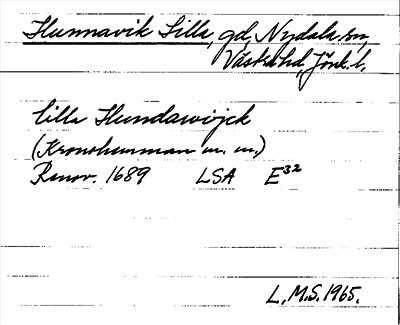 Hunnavik Lilla, gd, Nydala sn,
Västbo hd, Jönk. l.
Lilla Hundawijck
(Kronohemman m. m.)
Renov. 1689 LSA E32
L, M.S. 1965.